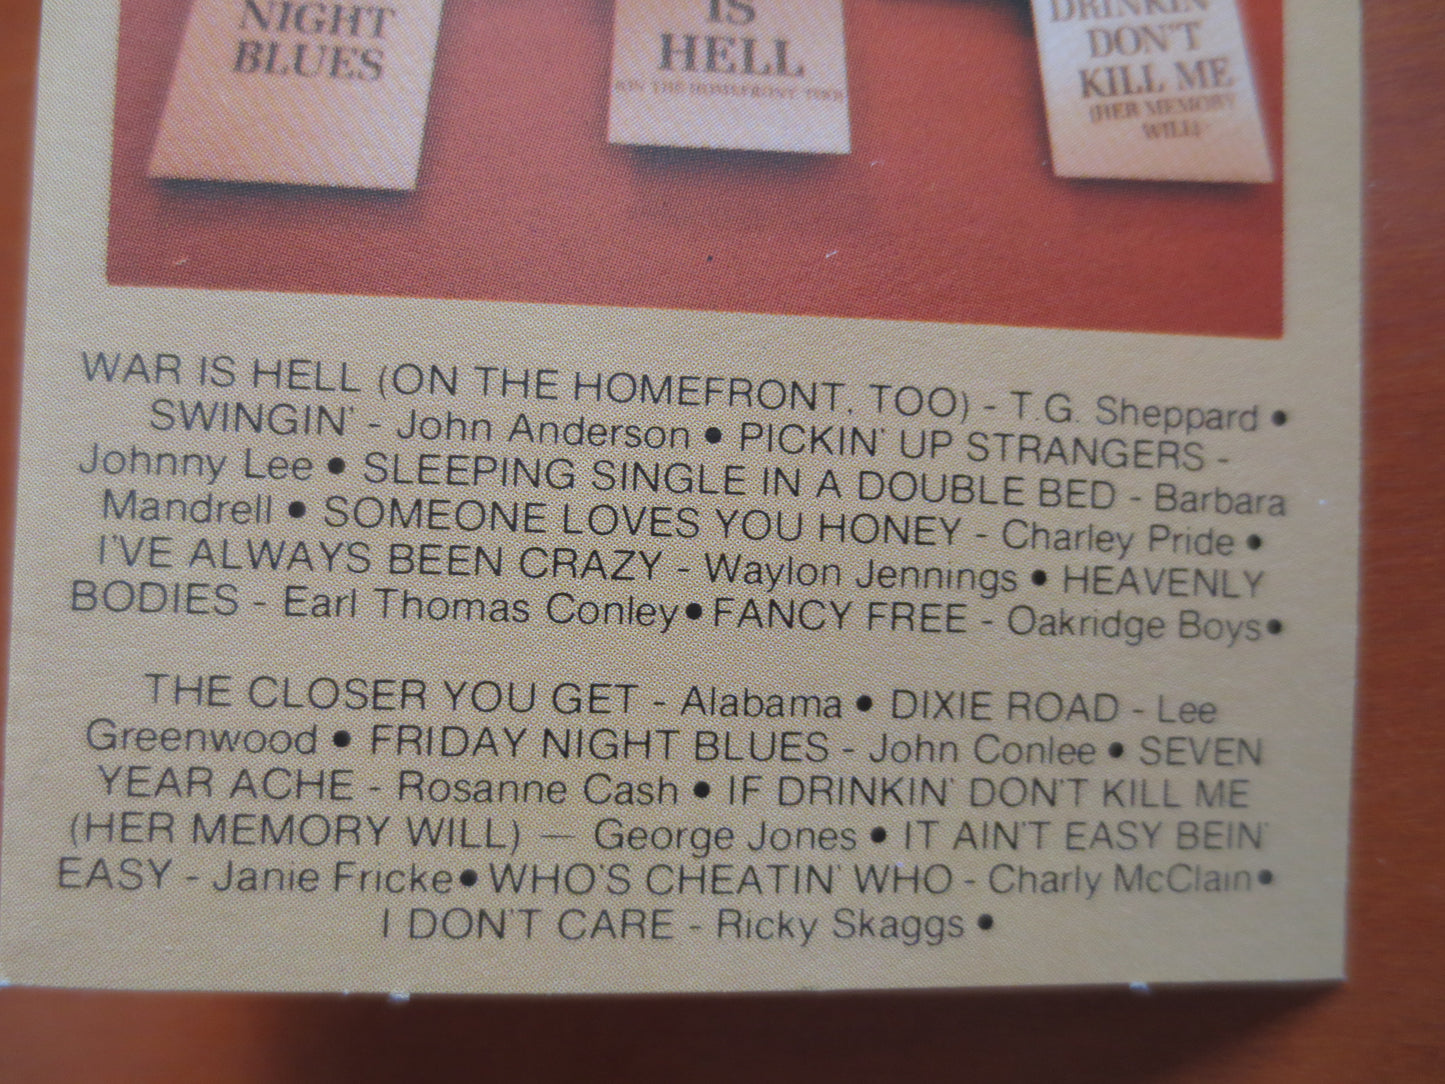 NIGHT
BLUES
IS
HELL
(ON THE HOMEFRONT TOO)
DRINKIN'
DON'T
KILL ME
(HER MEMORY
WILL)
WAR IS HELL (ON THE HOMEFRONT, TOO) - T.G. Sheppard •
SWINGIN' - John Anderson • PICKIN' UP STRANGERS -
Johnny Lee • SLEEPING SINGLE IN A DOUBLE BED - Barbara
Mandrell • SOMEONE LOVES YOU HONEY - Charley Pride •
I'VE ALWAYS BEEN CRAZY - Waylon Jennings • HEAVENLY
BODIES - Earl Thomas Conley • FANCY FREE - Oakridge Boys •
THE CLOSER YOU GET - Alabama • DIXIE ROAD - Lee
Greenwood • FRIDAY NIGHT BLUES - John Conlee • SEVEN
YEAR ACHE - Rosanne Cash • IF DRINKIN' DON'T KILL ME
(HER MEMORY WILL) — George Jones • IT AIN'T EASY BEIN'
EASY - Janie Fricke • WHO'S CHEATIN' WHO - Charly McClain •
I DON'T CARE - Ricky Skaggs •